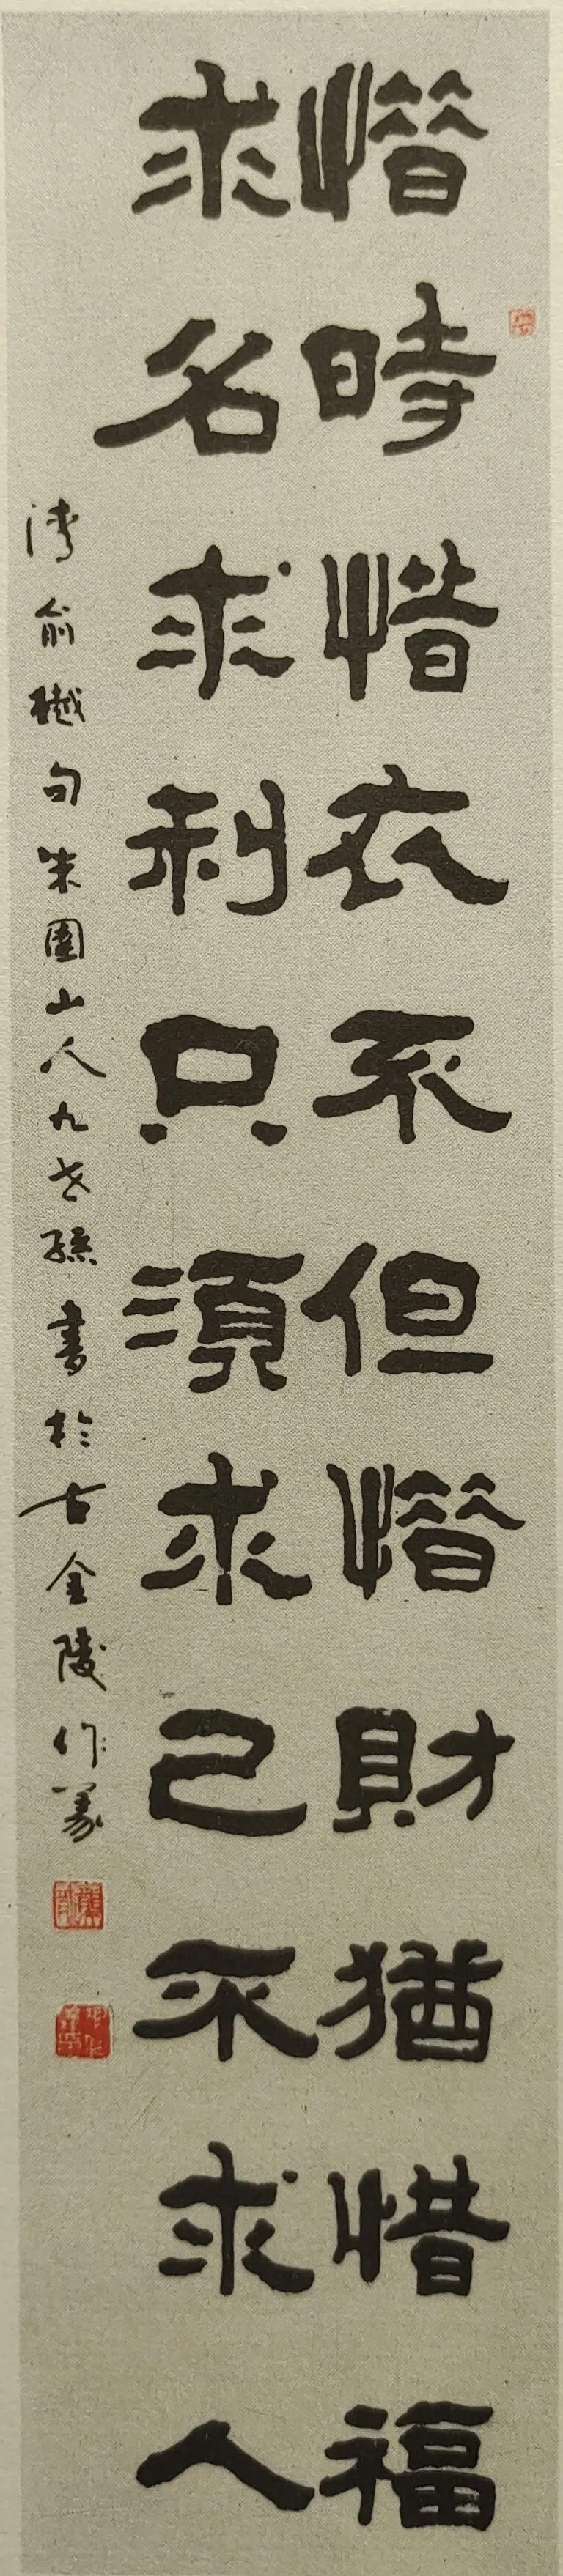 惜時惜衣不但惜財猶惜福
求名求利只須求己不求人
清俞樾句朱圉山人九世孫書於古金陵作義